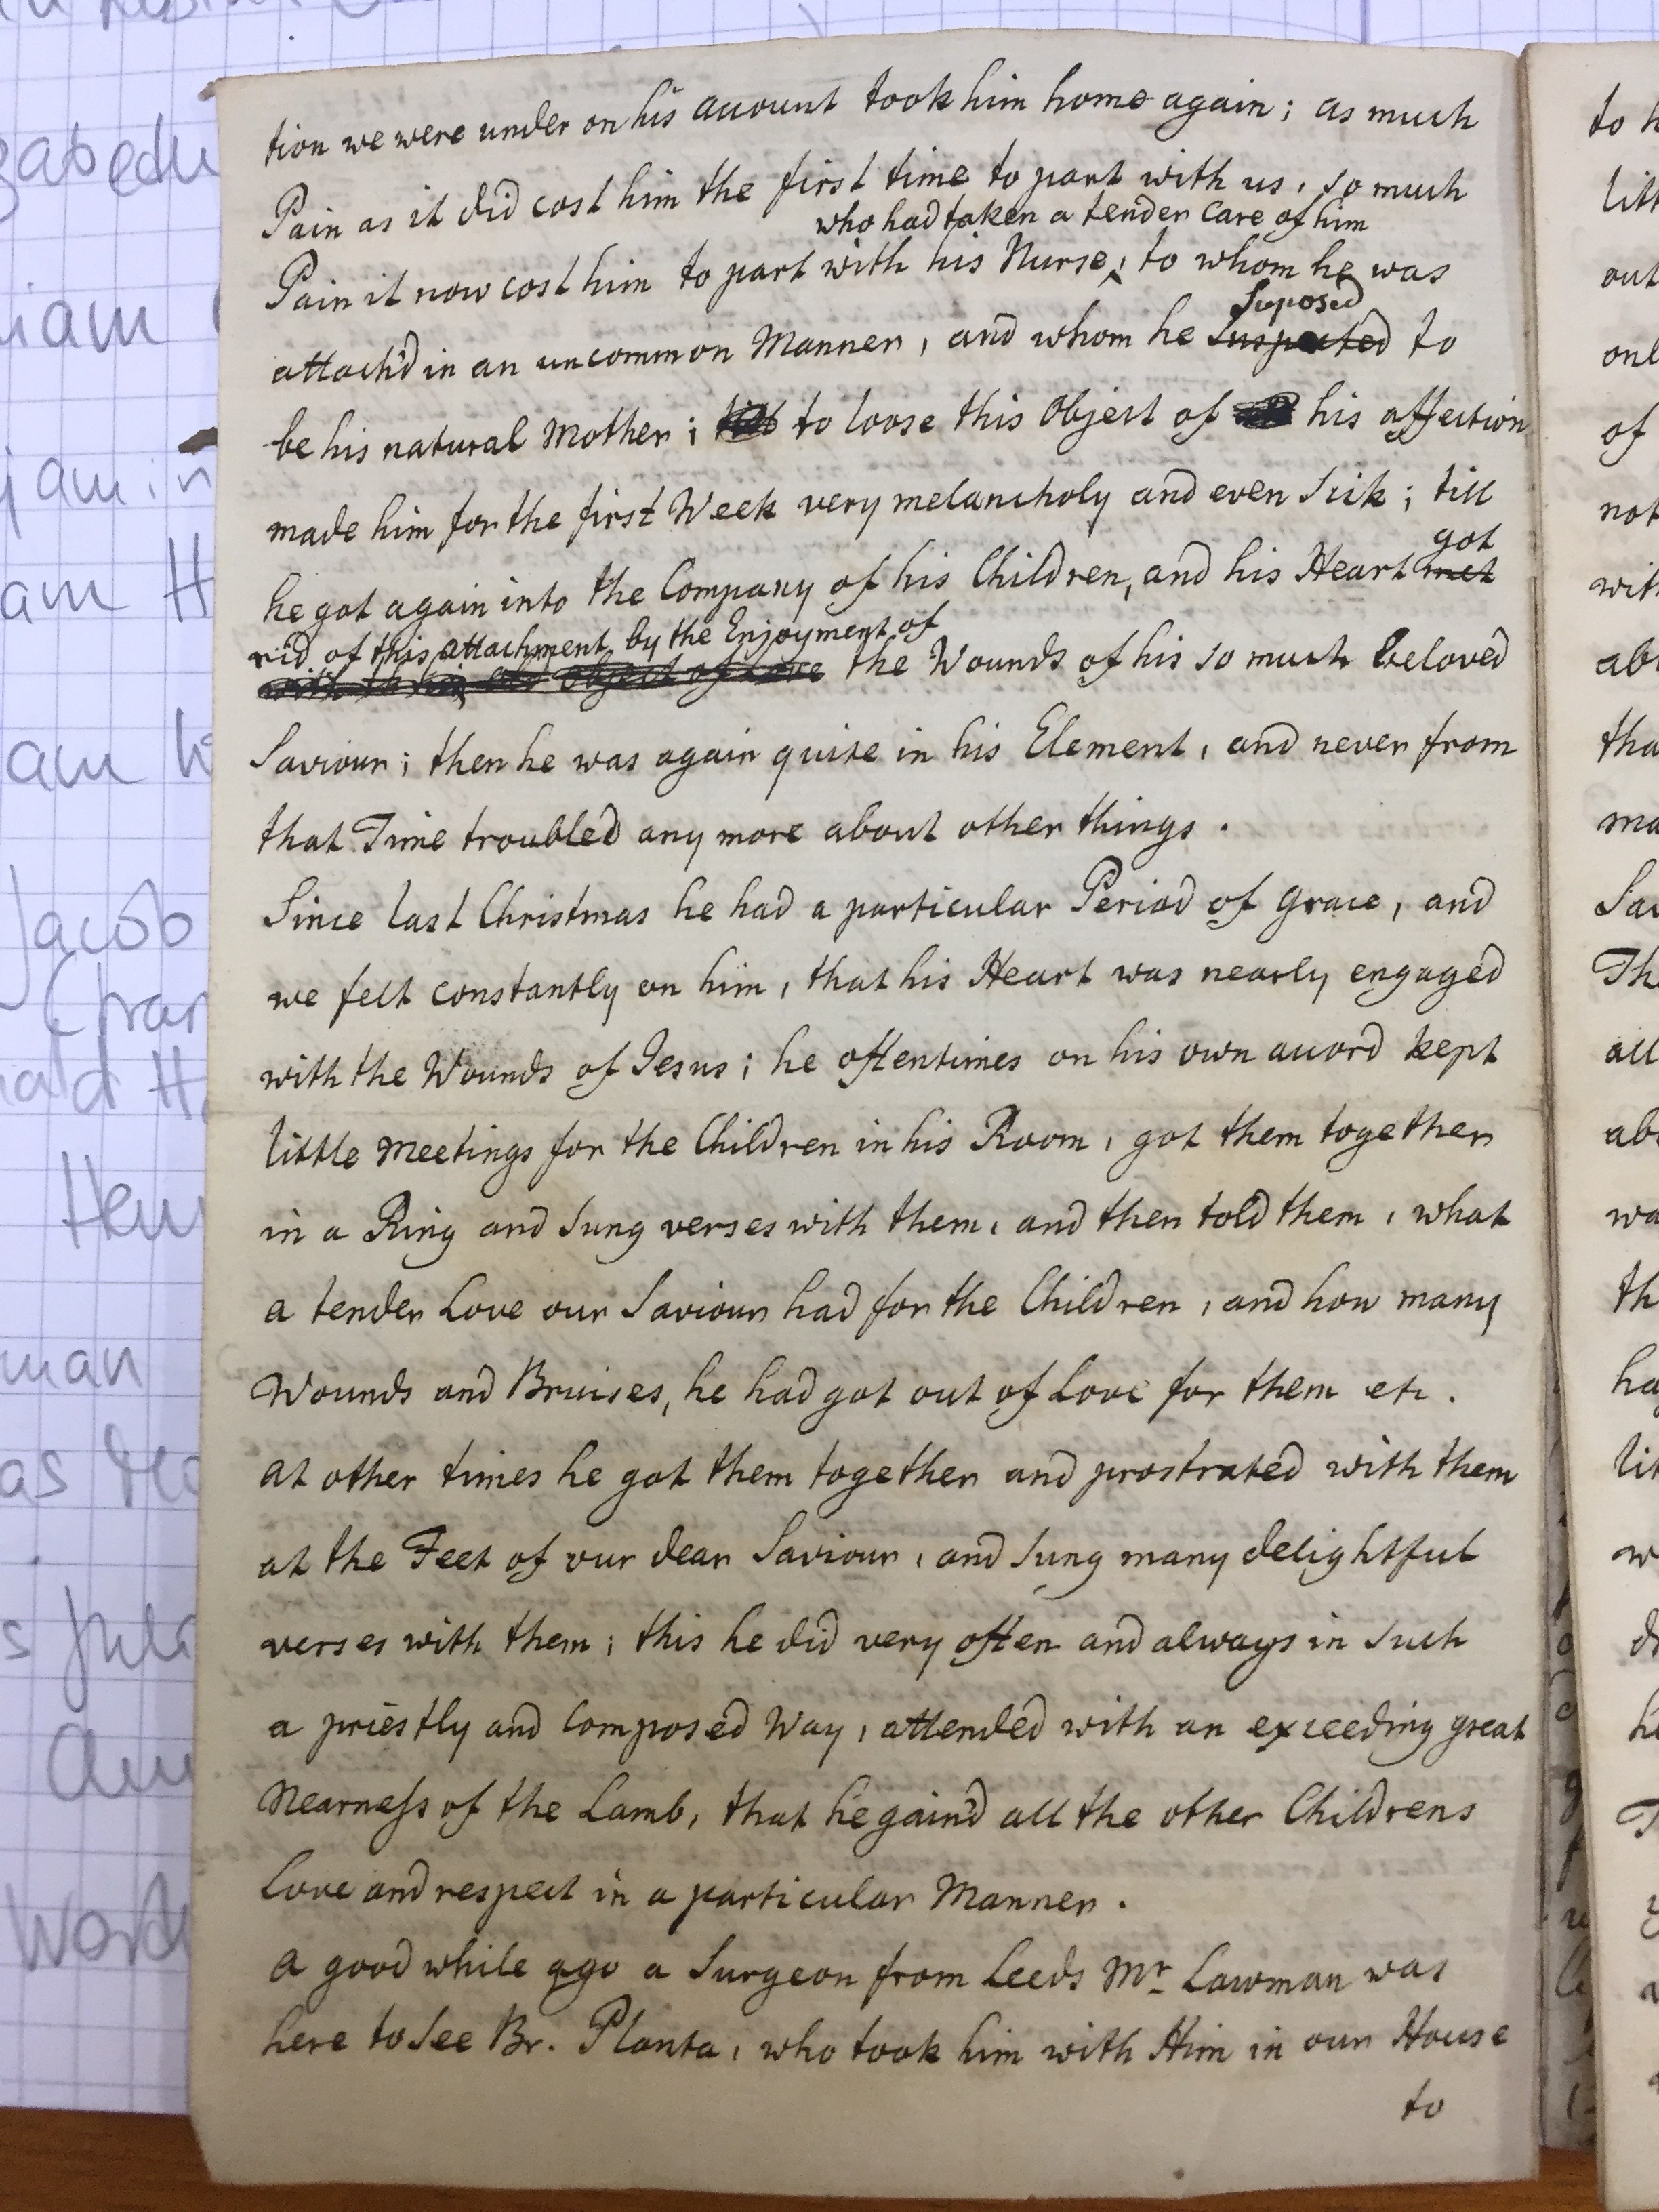 tion we were under on his account took him home again; as much
Pain as it did cost him the first time to part with us, so much
who had taken a tender Care of him
Pain it now cost him to part with his Nurse, to whom he was
Suposed
attach'd in an uncommon Manner, and whom he Suspected to
be his natural Mother; to loose this Object of his affection
made him for the first Week very melancholy and even Sick; till
got
he got again into the Company of his Children, and his Heart met
rid of this attachment by the Enjoyment of
object of Love the Wounds of his so much beloved
Saviour; then he was again quite in his Element, and never from
that Time troubled any more about other things.
Since last Christmas he had a particular Period of Grace, and
we felt constantly on him, that his Heart was nearly engaged
with the Wounds of Jesus; he oftentimes on his own accord kept
little Meetings for the Children in his Room, got them together
in a Ring and Sung verses with them, and then told them, what
a tender Love our Saviour had for the Children, and how many
Wounds and Bruises, he had got out of Love for them etc.
at other times he got them together and prostrated with them
at the Feet of our dear Saviour, and Sung many delightful
verses with them; this he did very often and always in Such
a priestly and Composed Way, attended with an exceeding great
Nearness of the Lamb, that he gain'd all the other Childrens
Love and respect in a particular Manner.
A good while ago a Surgeon from Leeds Mr. Lawman was
here to See Br. Planta, who took him with Him in our House
to